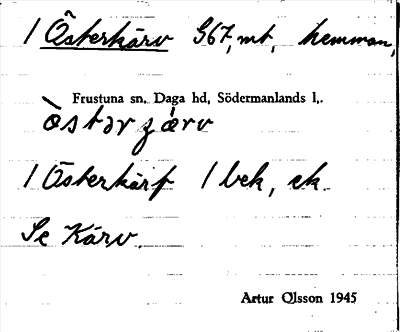 1 Österkärv 967, mt, hemman,
Frustuna sn, Daga hd, Södermanlands l.
òstər zǽrv
1 Österkärf 1 bek, ek.
Se Kärv.
Artur Olsson 1945